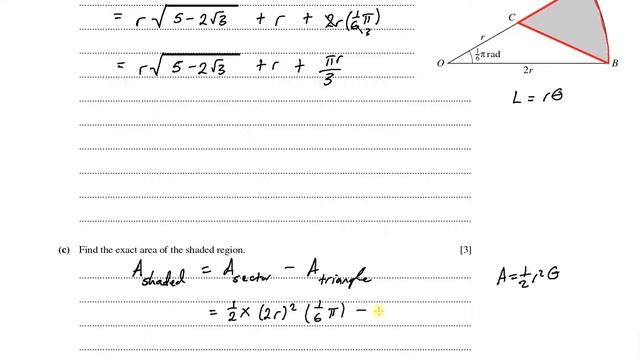 = r√(5 − 2√3) + r + 2r(1/6 π)
3
= r√(5 − 2√3) + r + πr/3
C
r
1/6 π rad
O
2r
B
L = rθ
(c) Find the exact area of the shaded region. [3]
A shaded = A sector − A triangle
A = 1/2 r² θ
= 1/2 × (2r)² (1/6 π) −